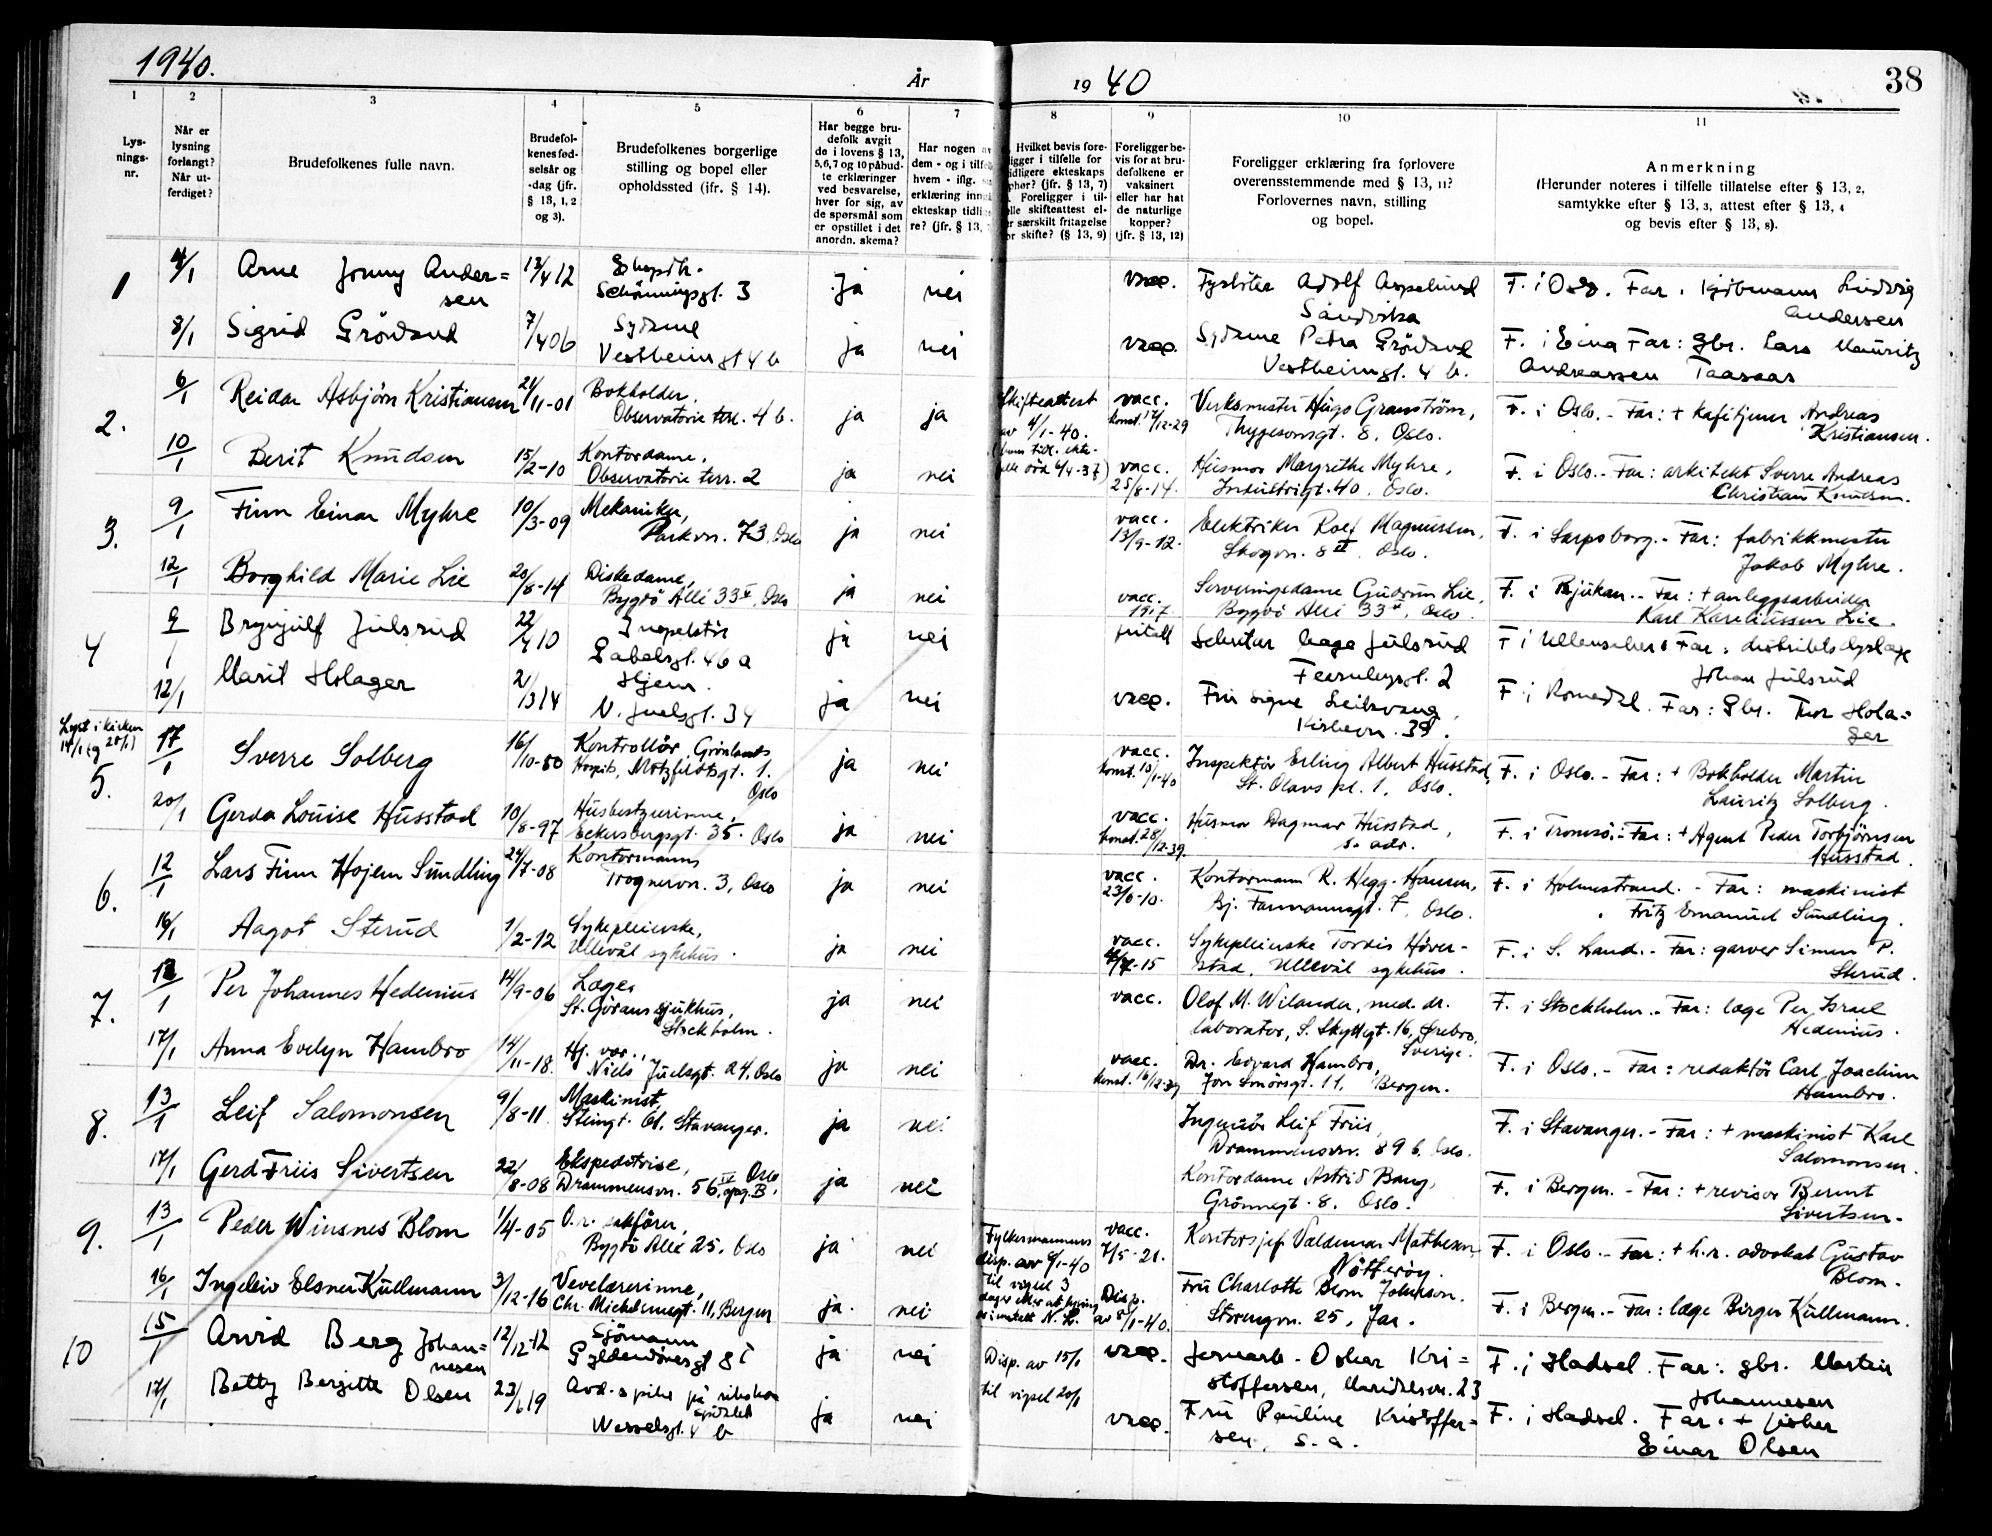 1940.
År
1940
38
1
2
3
4
5
6
7
8
9
10
11
Lys-
nings-
nr.
Når er
lysning
forlangt?
Når ut-
ferdiget?
Brudefolkenes fulle navn.
Brudefol-
kenes fød-
selsår og
-dag (jfr.
§ 13, 1, 2
og 3).
Brudefolkenes borgerlige
stilling og bopel eller
opholdssted (ifr. § 14).
Har begge bru-
defolk avgit
de i lovens § 13,
5,6,7 og 10 påbud-
te erklæringer
ved besvarelse,
hver for sig, av
de spørsmål som
er opstillet i det
anordn. skema?
Har nogen av
dem - og i tilfelle
hvem - iflg.
erklæring inngå
ekteskap tidlige-
re? (jfr. § 13,
Hvilket bevis fore-
ligger i tilfelle for
tidligere ekteskaps
ophør? (jfr. § 13, 7)
Foreligger i til-
felle skifteattest el-
er særskilt fritagelse
for skifte? (§ 13, 9)
Foreligger be-
vis for at bru-
defolkene er
vaksinert
eller har hat
de naturlige
kopper?
(jfr. § 13, 12)
Foreligger erklæring fra forlovere
overensstemmende med § 13, 11?
Forlovernes navn, stilling
og bopel.
Anmerkning
(Herunder noteres i tilfelle tillatelse efter § 13, 2,
samtykke efter § 13, 3, attest efter § 13, 4
og bevis efter § 13, 8).
1
4/1 Arne Jonny Ander=
sen
13/4 12
Schönningsgt. 3
ja nei
vacc. Adolf Aspelund
Sandvika
F. i Oslo. Far: Ludvig
Andersen
8/1 Sigrid Grövdund
7/4 06
Sydame
Vestheimgt 4 b
ja nei
vacc. Sydame Petra
Vestheimgt. 4 b.
F. i Eina Far: gbr. Lars Mauritz
Andreassen Taasaas
2.
6/1 Reidar Asbjörn Kristiansen
21/11-01
Bokholder,
Observatorie terr. 4 b.
ja ja
Skifteattest
av 4/1-40.
vacc.
konst. 12/12-29
Verksmester Hugo Granström,
Thygesonsgt. 8. Oslo.
F. i Oslo. - Far: + kafétjener Andreas
Kristiansen.
10/1 Berit Knudsen
15/2-10
Kontordame,
Observatorie terr. 2
ja nei
vacc.
25/8-14.
Husmor Margrethe Myhre,
Industrigt. 40. Oslo.
F. i Oslo. - Far: arkitekt Sverre Andreas
Christian Knudsen.
3.
9/1 Finn Einar Myhre
10/3-09
Mekaniker,
Parkvn. 73. Oslo
ja nei
vacc.
13/9-12.
Elektriker Rolf Magnussen,
Skogvn. 8 II. Oslo.
F. i Sarpsborg. - Far: fabrikkmester
Jakob Myhre.
12/1 Borghild Marie Lie
20/8-14
Diskedame,
Bygdö Allé 33 V, Oslo
ja nei
vacc.
1917.
Serveringsdame Gudrun Lie,
Bygdö Allé 33 V, Oslo.
F. i Rjukan. - Far: + anleggsarbeider
Karl Kareliussen Lie.
4
9/1 Brynjulf Julsrud
22/4 10
Inspektör
Gabelsgt. 46 a
ja nei
fritatt
Sekretær Aage Julsrud
Fearnleysgt. 2
F i Ullensaker Far: distriktsdyrlæge
Johan Julsrud
12/1 Marit Holager
2/3 14
Hjem.
N. Juelsgt. 34
ja nei
vacc. Fru Signe Leikvang,
Kirkevn. 39.
F. i Romedal. Far: Gbr. Thor Hola=
ger
Lyst i kirken
14/1 og 20/1)
5.
17/1 Sverre Solberg
16/10-80
Kontrollör, Grönlands
Hospits, Motzfeldtsgt. 1.
Oslo
ja nei
vacc.
konst. 15/1-40
Inspektör Erling Albert Husstad,
St. Olavs pl. 1, Oslo.
F. i Oslo. - Far: + Bokholder Martin
Lauritz Solberg.
20/1 Gerda Louise Husstad
10/8-97
Husbestyrerinne,
Eckersbergsgt. 35. Oslo
ja nei
vacc.
konst. 28/12-39.
Husmor Dagmar Husstad,
s. adr.
F. i Tromsö. - Far: + Agent Peder Torbjörnsen
Husstad.
6.
12/1 Lars Finn Hojem Sundling
24/7-08
Kontormann
Frognervn. 3, Oslo
ja nei
vacc.
23/6-10.
Kontormann R. Hegg-Hansen,
Bj. Farmannsgt. 7, Oslo.
F. i Holmestrand. - Far: maskinist
Fritz Emanuel Sundling.
16/1 Aagot Sterud
1/2-12
Sykepleierske,
Ullevål sykehus.
ja nei
vacc.
-15
Sykepleierske Tordis Höver-
stad, Ullevål sykehus.
F. i S. Land. - Far: garver Simen P.
Sterud.
7.
12/1 Per Johannes Hedenius
14/9-06
Læge,
St. Görans sjukhus,
Stockholm.
ja nei
vacc. Olof M. Wilander, med. dr.
laborator, S. Skyttegt. 16, Örebro,
Sverige.
F. i Stockholm. - Far: læge Per Israel
Hedenius.
17/1 Anna Evelyn Hambro
14/11-18.
Hj. vær.,
Niels Juelsgt. 24, Oslo
ja nei
vacc.
konst. 16/12-39
Dr. Edvard Hambro,
Jon Smörsgt. 11, Bergen.
F. i Oslo. - Far: redaktör Carl Joachim
Hambro.
8.
13/1 Leif Salomonsen
9/8-11.
Maskinist,
Steingt. 61. Stavanger.
ja nei
Ingeniör Leif Friis,
Drammensvn. 89 b. Oslo.
F. i Stavanger. - Far: + maskinist Karl
Salomonsen.
17/1 Gerd Friis Sivertsen
22/8-08
Ekspeditrise, Oslo
Drammensvn. 56 IV, opg. B,
ja nei
Kontordame Astrid Bang,
Grönnegt. 8. Oslo.
F. i Bergen. - Far: + revisor Bernt
Sivertsen.
9.
13/1 Peder Winsnes Blom
1/4-05
O.r. sakförer,
Bygdö Allé 25, Oslo
ja nei
Fylkesmannens
disp. av 6/1-40
til vigsel 3
dager etter at lysning
vacc.
7/5-21.
Kontorsjef Valdemar Mathesen
Nötteröy.
F. i Oslo. - Far: + h.r. advokat Gustav
Blom.
16/1 Ingeleiv Elsner Kullmann
3/12-16
Vevelærerinne,
Chr. Michelsensgt. 11, Bergen
ja. nei
Disp.
av 5/1-40.
Fru Charlotte Blom Johnson.
Storengvn. 25, Jar.
F. i Bergen. - Far: læge Birger Kullmann.
10
15/1 Arvid Berg Johan=
nesen
12/12-12
Sjömann
Gyldenlövesgt 8 I
ja nei
Disp. av 15/1
til vigsel 20/1
vacc. Jernarb. Oskar Kri=
stoffersen, Maridalsvn. 23
F. i Hadsel. Far: gbr. Martin
Johannesen
17/1 Betty Bergitte Olsen
23/6 19
på rikshos
Wesselsgt. 4 b
ja nei
vacc. Fru Pauline Kristoffer=
sen, s. a.
F. i Hadsel. Far: + fisker
Einar Olsen